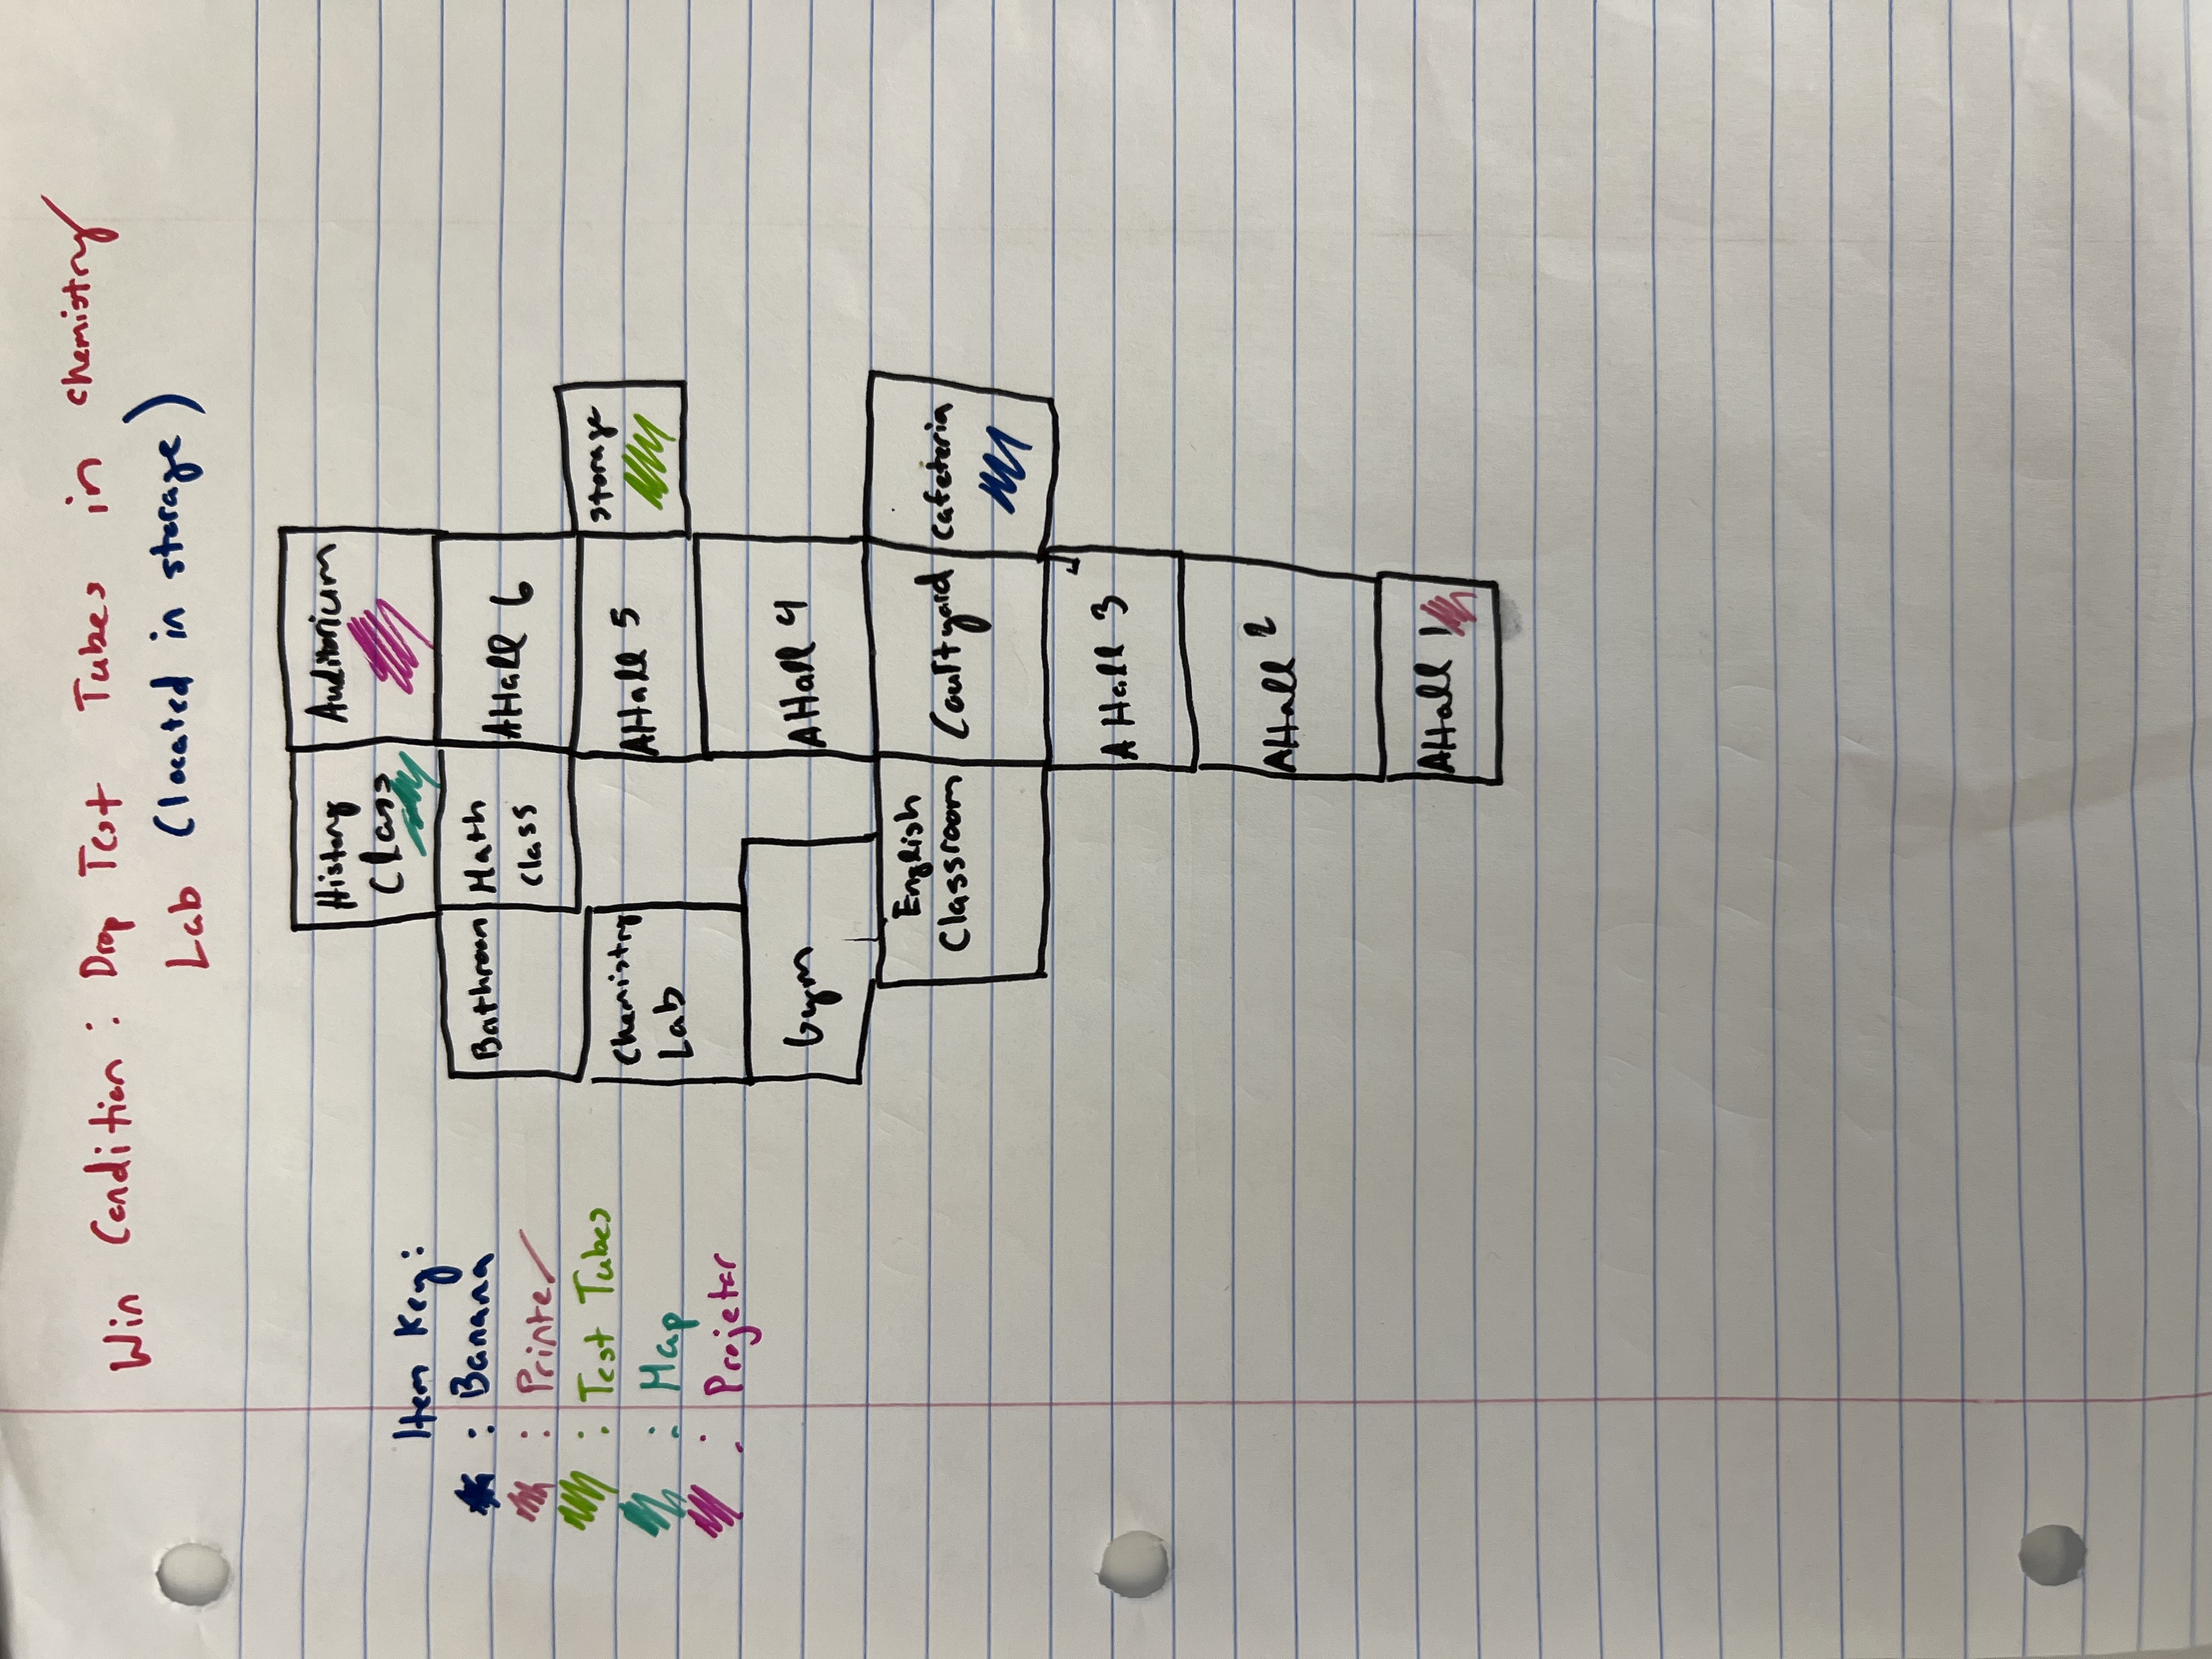 Win Condition: Drop Test Tubes in chemistry
Lab (located in storage)
Item Key:
: Banana
: Printer
: Test Tubes
: Map
: Projetor
History
Class
Auditorium
Bathroom
Math
class
AHall 6
Chemistry
Lab
AHall 5
storage
Gym
AHall 4
English
Classroom
Courtyard
Cafeteria
AHall 3
AHall 2
AHall 1